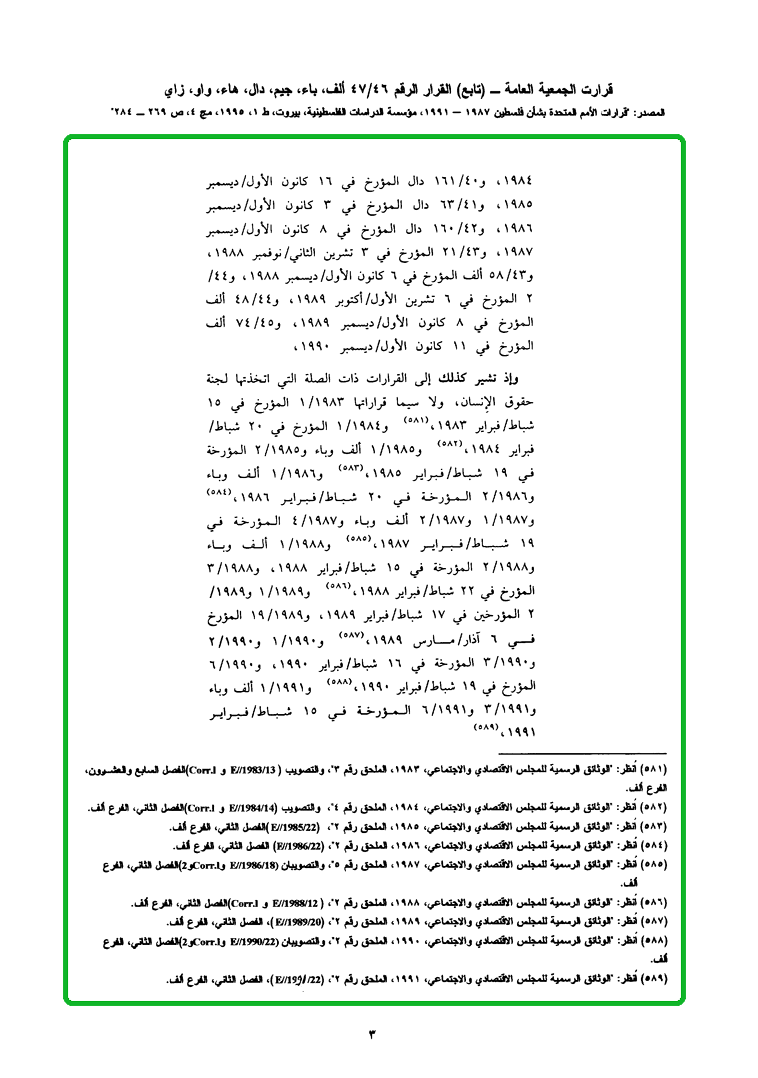 قرارت الجمعية العامة ــ (تابع) القرار الرقم ٤٧/٤٦ ألف، باء، جيم، دال، هاء، واو، زاي
المصدر: "قرارات الأمم المتحدة بشأن فلسطين ١٩٨٧ – ١٩٩١، مؤسسة الدراسات الفلسطينية، بيروت، ط ١، ١٩٩٥، مج ٤، ص ٢٦٩ ــ ٢٨٤"
١٩٨٤، و١٦١/٤٠ دال المؤرخ في ١٦ كانون الأول/ديسمبر
١٩٨٥، و٦٣/٤١ دال المؤرخ في ٣ كانون الأول/ديسمبر
١٩٨٦، و١٦٠/٤٢ دال المؤرخ في ٨ كانون الأول/ديسمبر
١٩٨٧، و٢١/٤٣ المؤرخ في ٣ تشرين الثاني/نوفمبر ١٩٨٨،
و٥٨/٤٣ ألف المؤرخ في ٦ كانون الأول/ديسمبر ١٩٨٨، و٤٤/
٢ المؤرخ في ٦ تشرين الأول/أكتوبر ١٩٨٩، و٤٨/٤٤ ألف
المؤرخ في ٨ كانون الأول/ديسمبر ١٩٨٩، و٧٤/٤٥ ألف
المؤرخ في ١١ كانون الأول/ديسمبر ١٩٩٠،
وإذ تشير كذلك إلى القرارات ذات الصلة التي اتخذتها لجنة
حقوق الإنسان، ولا سيما قراراتها ١/١٩٨٣ المؤرخ في ١٥
شباط/فبراير ١٩٨٣،(٥٨١) و١/١٩٨٤ المؤرخ في ٢٠ شباط/
فبراير ١٩٨٤،(٥٨٢) و١/١٩٨٥ ألف وباء و٢/١٩٨٥ المؤرخة
في ١٩ شباط/فبراير ١٩٨٥،(٥٨٣) و١/١٩٨٦ ألف وباء
و٢/١٩٨٦ المؤرخة في ٢٠ شباط/فبراير ١٩٨٦،(٥٨٤)
و١/١٩٨٧ و٢/١٩٨٧ ألف وباء و٤/١٩٨٧ المؤرخة في
١٩ شباط/فبراير ١٩٨٧،(٥٨٥) و١/١٩٨٨ ألف وباء
و٢/١٩٨٨ المؤرخة في ١٥ شباط/فبراير ١٩٨٨، و٣/١٩٨٨
المؤرخ في ٢٢ شباط/فبراير ١٩٨٨،(٥٨٦) و١/١٩٨٩ و١٩٨٩/
٢ المؤرخين في ١٧ شباط/فبراير ١٩٨٩، و١٩/١٩٨٩ المؤرخ
في ٦ آذار/مارس ١٩٨٩،(٥٨٧) و١/١٩٩٠ و٢/١٩٩٠
و٣/١٩٩٠ المؤرخة في ١٦ شباط/فبراير ١٩٩٠، و٦/١٩٩٠
المؤرخ في ١٩ شباط/فبراير ١٩٩٠،(٥٨٨) و١/١٩٩١ ألف وباء
و٣/١٩٩١ و٦/١٩٩١ المؤرخة في ١٥ شباط/فبراير
١٩٩١،(٥٨٩)
(٥٨١) أنظر: "الوثائق الرسمية للمجلس الاقتصادي والاجتماعي، ١٩٨٣، الملحق رقم ٣"، والتصويب ( E//1983/13 و Corr.1)الفصل السابع والعشرون،
الفرع ألف.
(٥٨٢) أنظر: "الوثائق الرسمية للمجلس الاقتصادي والاجتماعي، ١٩٨٤، الملحق رقم ٤"، والتصويب (E//1984/14 و Corr.1)الفصل الثاني، الفرع ألف.
(٥٨٣) أنظر: "الوثائق الرسمية للمجلس الاقتصادي والاجتماعي، ١٩٨٥، الملحق رقم ٢"، (E//1985/22 )الفصل الثاني، الفرع ألف.
(٥٨٤) أنظر: "الوثائق الرسمية للمجلس الاقتصادي والاجتماعي، ١٩٨٦، الملحق رقم ٢"، (E//1986/22) الفصل الثاني، الفرع ألف.
(٥٨٥) أنظر: "الوثائق الرسمية للمجلس الاقتصادي والاجتماعي، ١٩٨٧، الملحق رقم ٥"، والتصويبان (E//1986/18 وCorr.1و2)الفصل الثاني، الفرع
ألف.
(٥٨٦) أنظر: "الوثائق الرسمية للمجلس الاقتصادي والاجتماعي، ١٩٨٨، الملحق رقم ٢"، ( E//1988/12 و Corr.1)الفصل الثاني، الفرع ألف.
(٥٨٧) أنظر: "الوثائق الرسمية للمجلس الاقتصادي والاجتماعي، ١٩٨٩، الملحق رقم ٢"، (E//1989/20 )، الفصل الثاني، الفرع ألف.
(٥٨٨) أنظر: "الوثائق الرسمية للمجلس الاقتصادي والاجتماعي، ١٩٩٠، الملحق رقم ٢"، والتصويبان (E//1990/22 وCorr.1و2)الفصل الثاني، الفرع
ألف.
(٥٨٩) أنظر: "الوثائق الرسمية للمجلس الاقتصادي والاجتماعي، ١٩٩١، الملحق رقم ٢"، (E//1991/22 )، الفصل الثاني، الفرع ألف.
٣